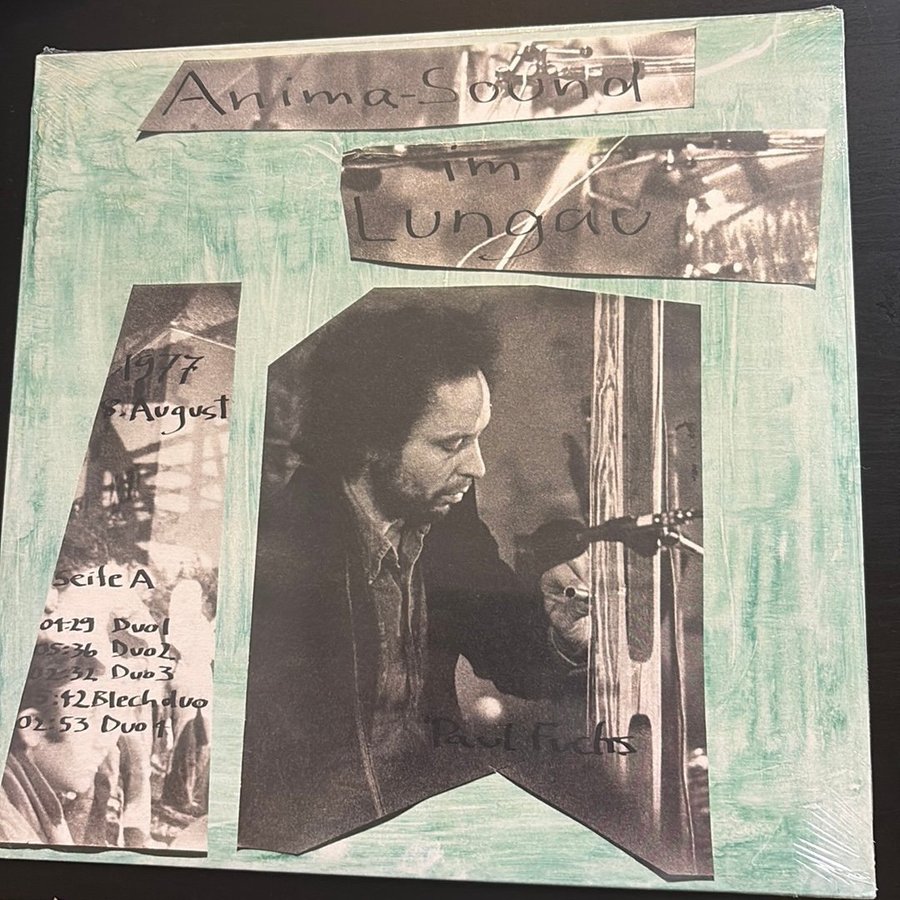 Anima-Sound
im
Lungau
1977
8. August
Seite A
04:29 Duo1
05:36 Duo2
02:32 Duo3
:42 Blechduo
02:53 Duo4
Paul Fuchs